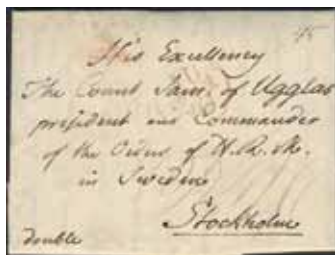 His Excellency
The Count Sam. of Ugglas
president and Commander
of the Orders of H. R. M.
in Sweden
Stockholm
double